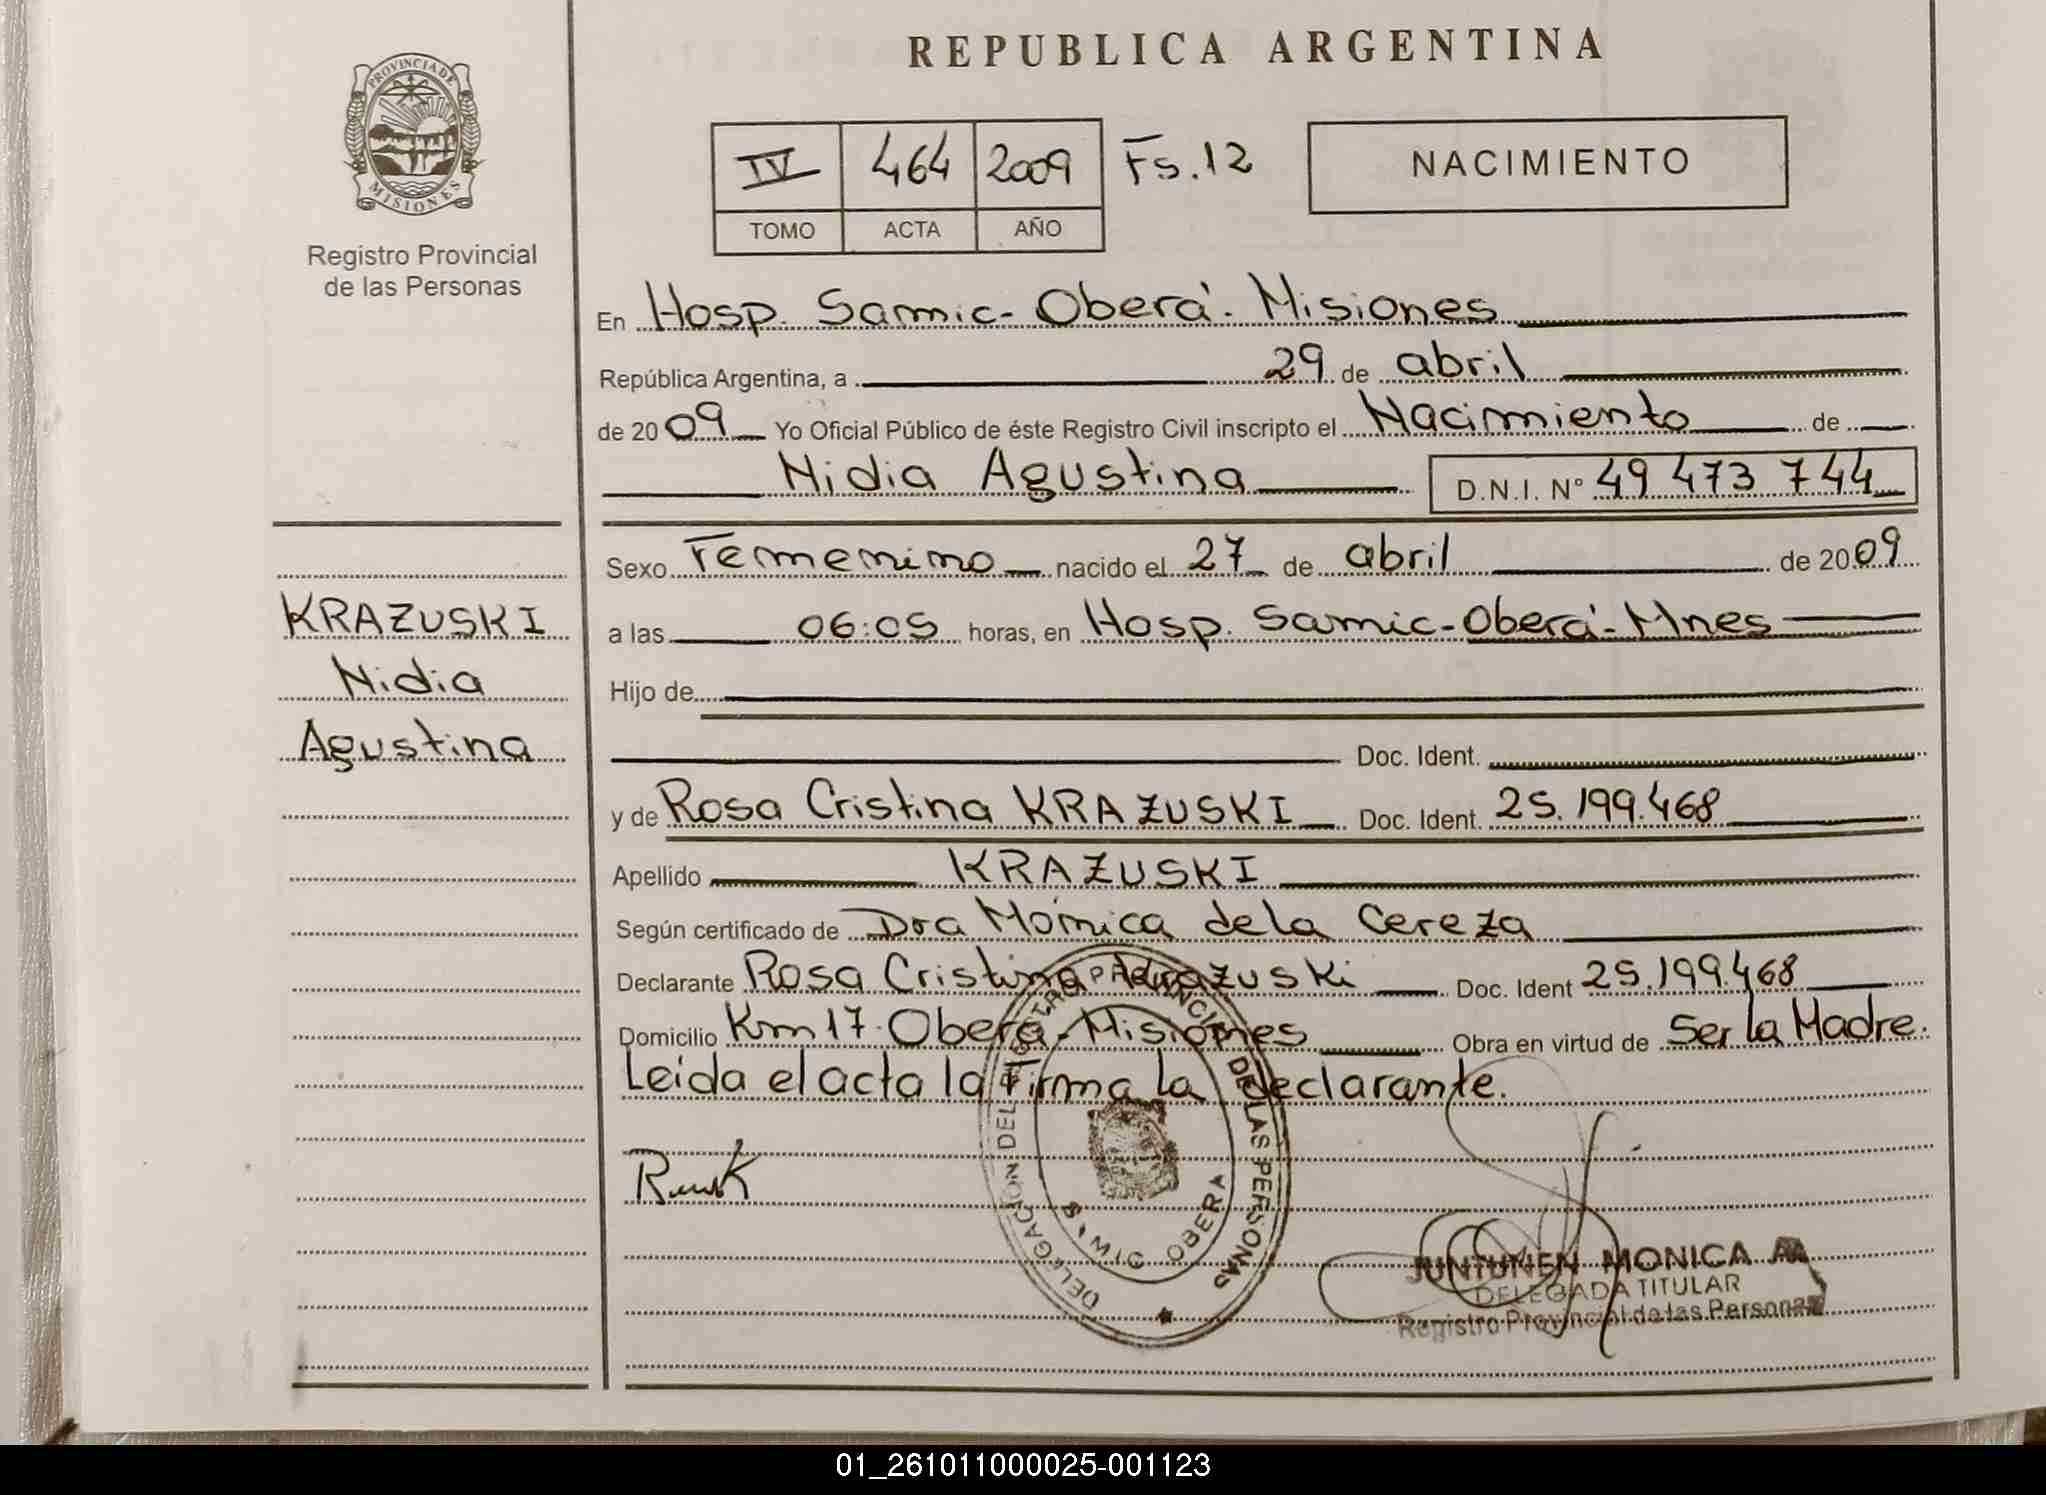 REPUBLICA ARGENTINA
PROVINCIA DE
MISIONES
Registro Provincial
de las Personas
IV 464 2009 Fs. 12
TOMO ACTA AÑO
NACIMIENTO
En Hosp. Samic - Oberá - Misiones
República Argentina, a 29 de abril
de 2009 Yo Oficial Público de éste Registro Civil inscripto el Nacimiento de
Nidia Agustina D.N.I. N° 49 473 744
Sexo Femenino nacido el 27 de abril de 2009
KRAZUSKI
Nidia
Agustina
a las 06:05 horas, en Hosp. Samic - Oberá - Mnes
Hijo de
Doc. Ident.
y de Rosa Cristina KRAZUSKI Doc. Ident. 25.199.468
Apellido KRAZUSKI
Según certificado de Dra Mónica de la Cereza
Declarante Rosa Cristina Krazuski Doc. Ident 25.199.468
Domicilio Km 17 - Oberá - Misiones Obra en virtud de Ser la Madre.
Leida el acta la Firma la declarante.
DELEGACION DEL REGISTRO PROVINCIAL DE LAS PERSONAS
OBERA
JUNTUNEN MONICA
DELEGADA TITULAR
Registro Provincial de las Personas
01_261011000025-001123